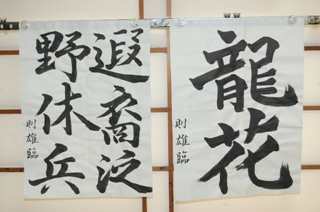 龍花
則雄臨
遐裔泛
野休兵
則雄臨